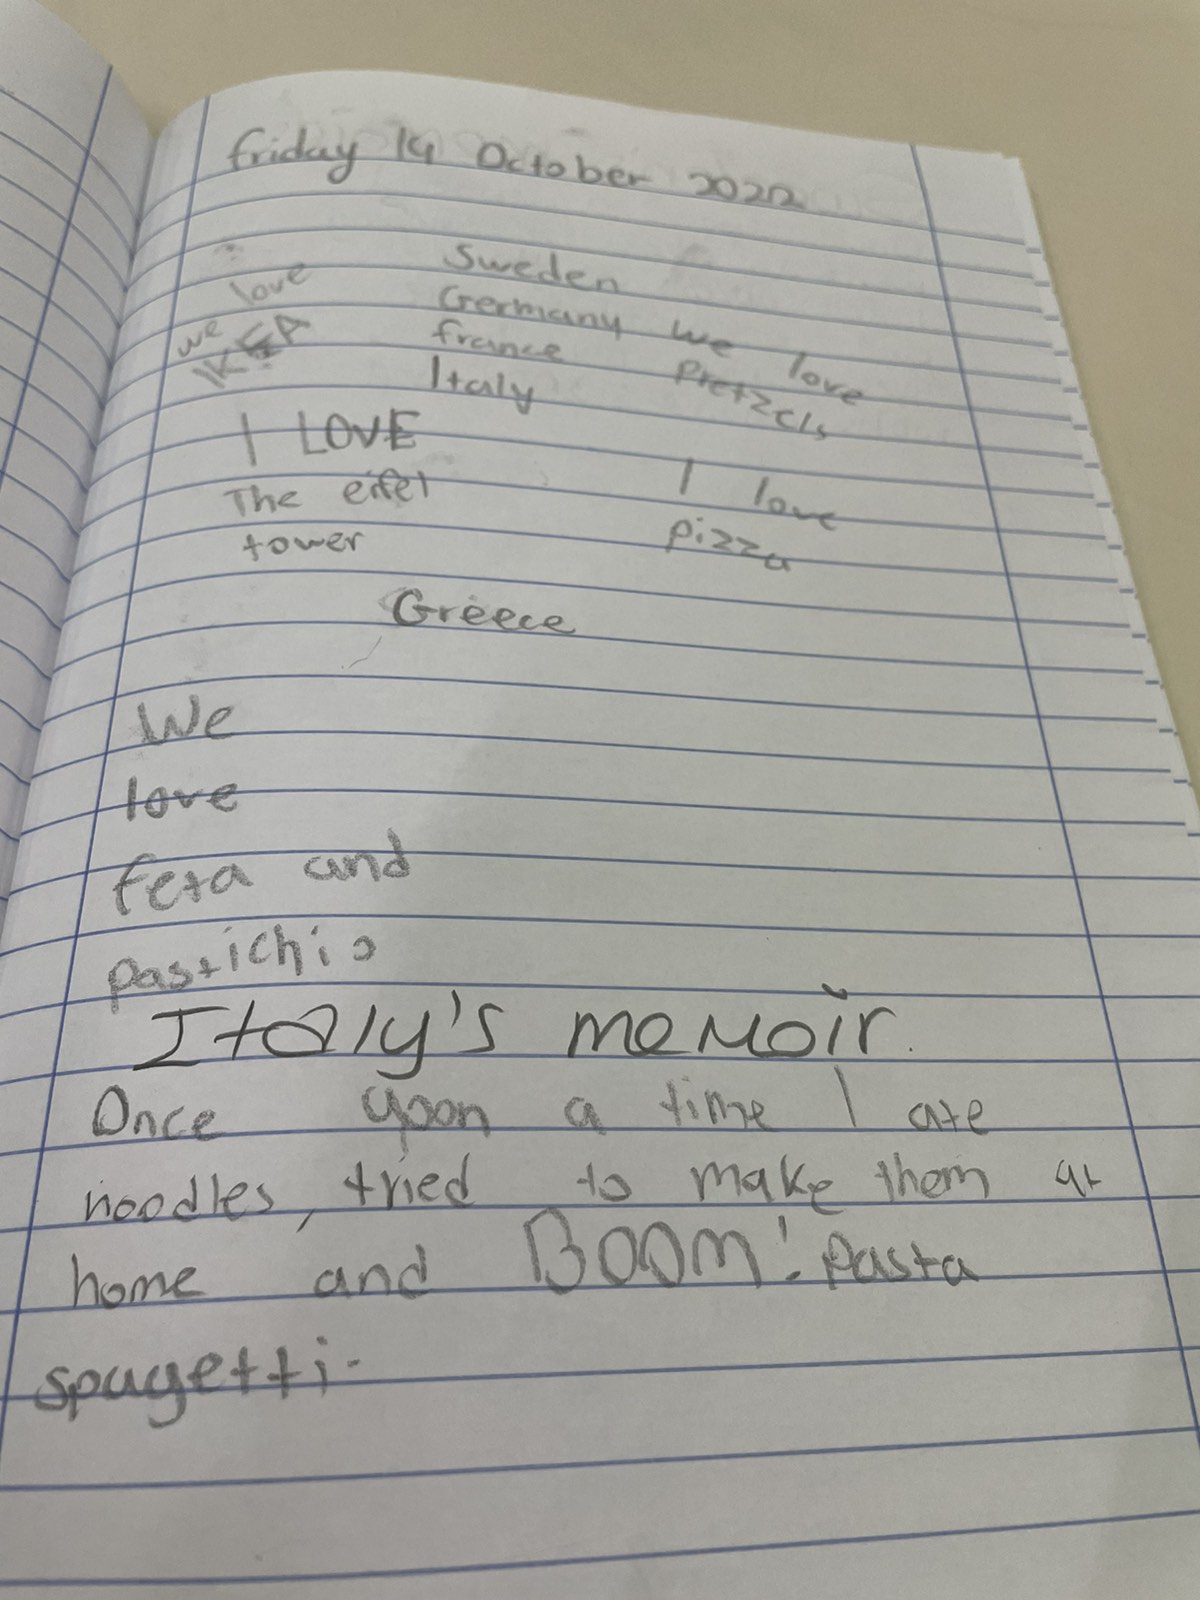 friday 14 October 2022
we love
IKEA
Sweden
Germany
france
Italy
we love
Pretzels
I LOVE
The eifel
tower
I love
pizza
Greece
We
love
feta and
pastichio
Italy's memoir.
Once upon a time I ate
noodles, tried to make them at
home and BOOM! Pasta
spagetti.